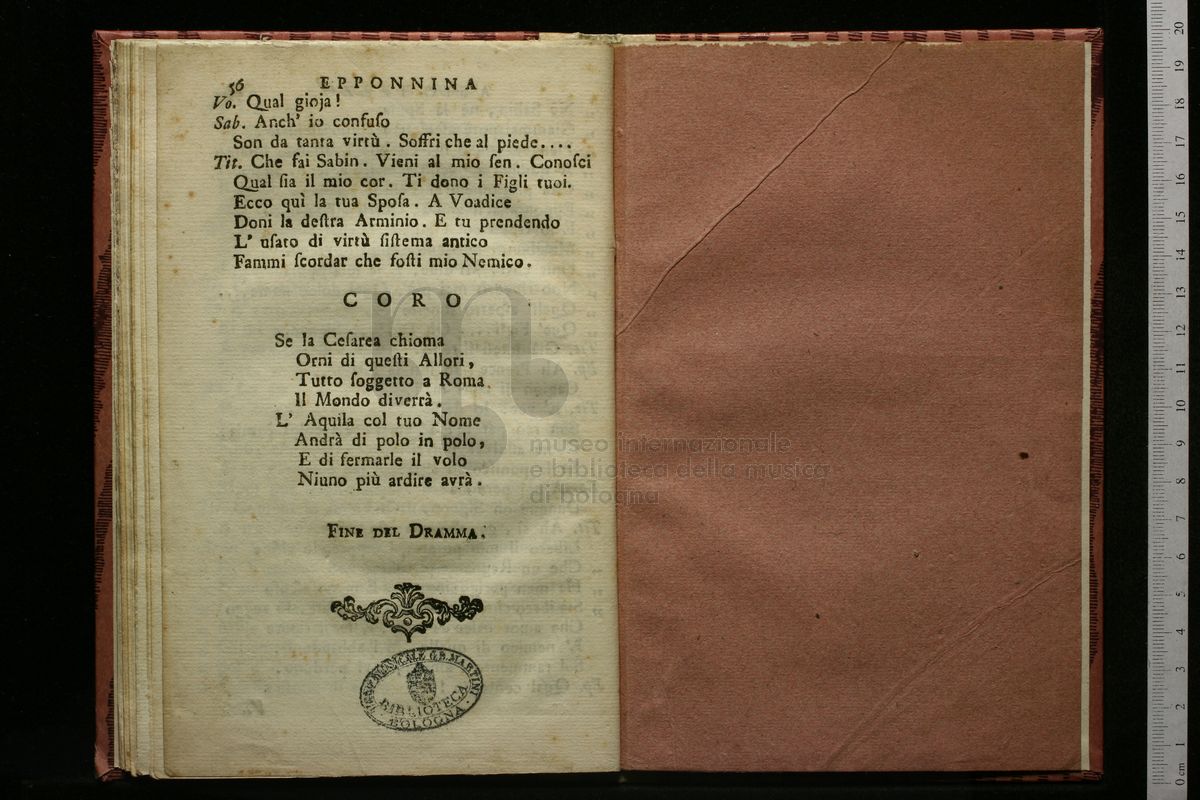 56 EPPONNINA
Vo. Qual gioja!
Sab. Anch' io confuſo
Son da tanta virtù. Soffri che al piede....
Tit. Che fai Sabin. Vieni al mio ſen. Conoſci
Qual ſia il mio cor. Ti dono i Figli tuoi.
Ecco quì la tua Spoſa. A Voadice
Doni la deſtra Arminio. E tu prendendo
L' uſato di virtù ſiſtema antico
Fammi ſcordar che foſti mio Nemico.
CORO
Se la Ceſarea chioma
Orni di queſti Allori,
Tutto ſoggetto a Roma
Il Mondo diverrà.
L' Aquila col tuo Nome
Andrà di polo in polo,
E di fermarle il volo
Niuno più ardire avrà.
FINE DEL DRAMMA.
G.B. MARTINI
BIBLIOTECA
BOLOGNA
museo internazionale
e biblioteca della musica
di bologna
0 cm 1 2 3 4 5 6 7 8 9 10 11 12 13 14 15 16 17 18 19 20